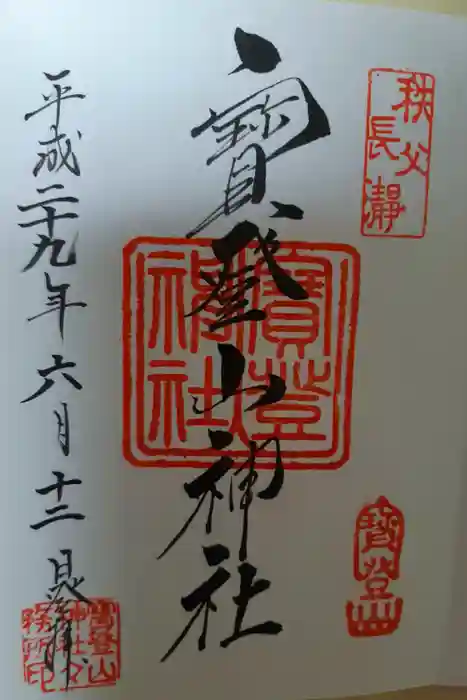 秩父
長瀞
寳登山神社
寳登
神社
寳登山
平成二十九年六月十二日
登拝
寳登山
神社々
務所印